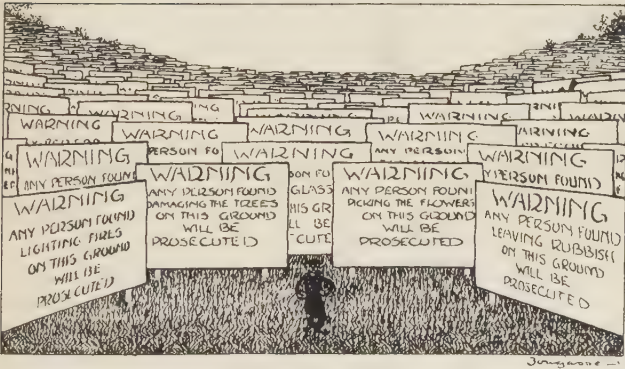 RNING
NING
WARNING
WARNING
WARNING
WARNING
ARNING
WARNING
PERSON FO
WARNING
WARNING
ANY PERSON
WARNING
ANY PERSON FOUN
WARNING
Y PERSON FOUND
WARNING
ANY PERSON FOUND
LIGHTING FIRES
ON THIS GROUND
WILL BE
PROSECUTED
WARNING
ANY PERSON FOUND
DAMAGING THE TREES
ON THIS GROUND
WILL BE
PROSECUTED
SON FO
GLASS
HIS GR
LL BE
CUTE
WARNING
ANY PERSON FOUN
PICKING THE FLOWERS
ON THIS GROUND
WILL BE
PROSECUTED
WARNING
ANY PERSON FOUND
LEAVING RUBBISH
ON THIS GROUND
WILL BE
PROSECUTED